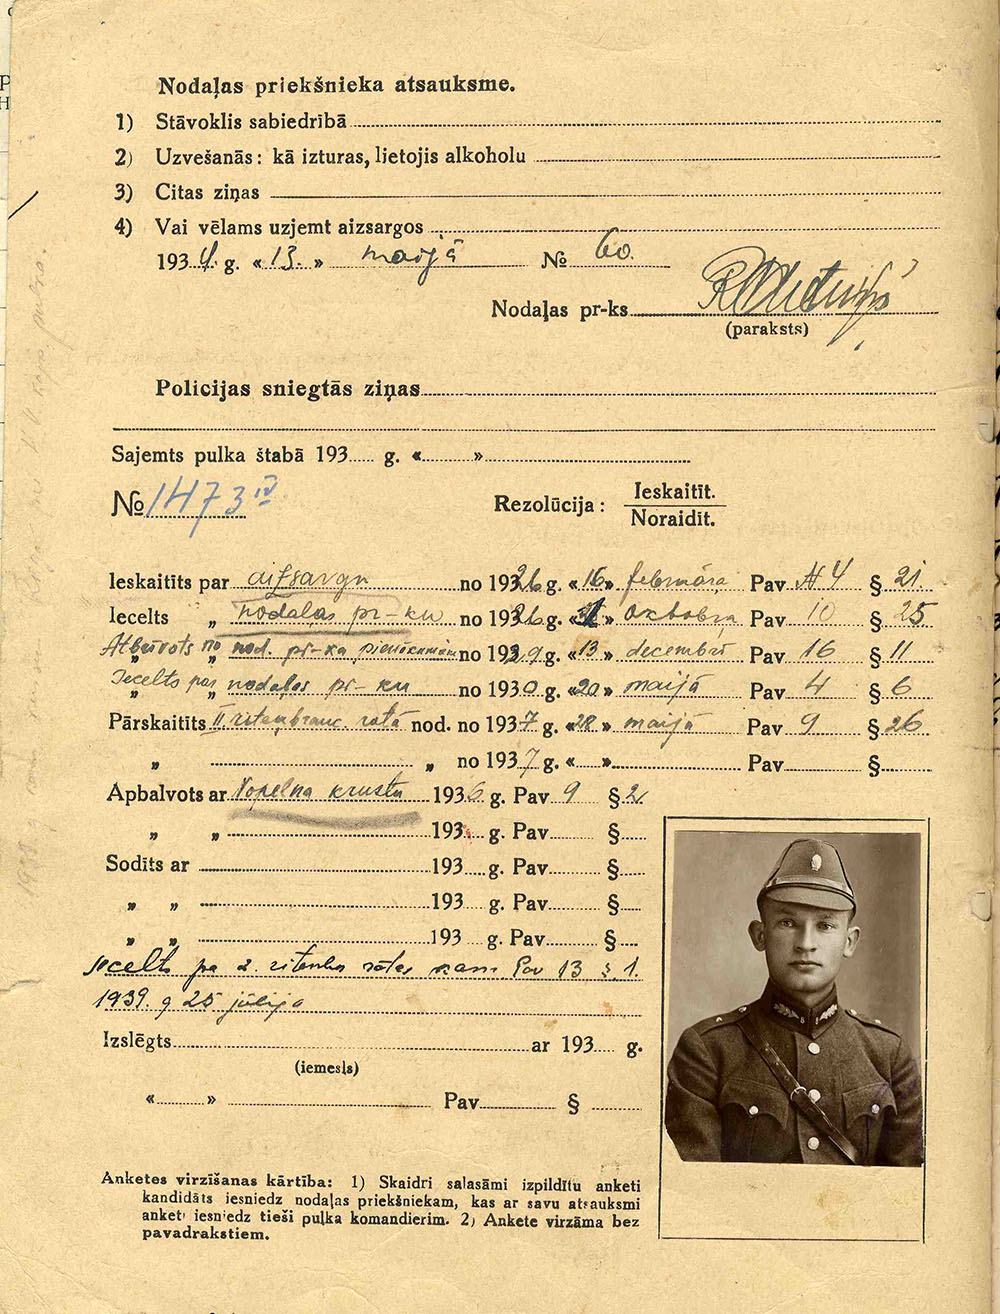 Nodaļas priekšnieka atsauksme.
1) Stāvoklis sabiedrībā
2) Uzvešanās: kā izturas, lietojis alkoholu
3) Citas ziņas
4) Vai vēlams uzjemt aizsargos
1934. g. «13.» maijā № 60.
Nodaļas pr-ks
(paraksts)
Policijas sniegtās ziņas
Sajemts pulka štabā 193 g. « »
№ 1473 IV
Rezolūcija: Ieskaitīt.
Noraidīt.
Ieskaitīts par aizsargu no 1926 g. «16» februāra Pav № 4 § 21.
Iecelts „ nodaļas pr-ku no 1926 g. « » oktobra Pav 10 § 25
Atbrīvots no nod. pr-ka pienākumiem no 1929 g. «13» decembrī Pav 16 § 11
Iecelts par nodaļas pr-ku no 1930 g. «20» maijā Pav 4 § 6
Pārskaitīts II. riteņbrauc. rotā nod. no 1937 g. «28» maijā Pav 9 § 26
„ „ no 1937 g. « » Pav §
Apbalvots ar Nopelna krustu 1936 g. Pav 9 § 2.
„ „ 193 g. Pav §
Sodīts ar 193 g. Pav §
„ „ 193 g. Pav §
„ „ 193 g. Pav §
Iecelts pa 2. riteņbr. rotas Pav 13 § 1.
1939. g 25 jūlijā
Izslēgts ar 193 g.
(iemesls)
« » Pav §
Anketes virzīšanas kārtība: 1) Skaidri salasāmi izpildītu anketi
kandidāts iesniedz nodaļas priekšniekam, kas ar savu atsauksmi
anketi iesniedz tieši pulka komandierim. 2) Ankete virzāma bez
pavadrakstiem.